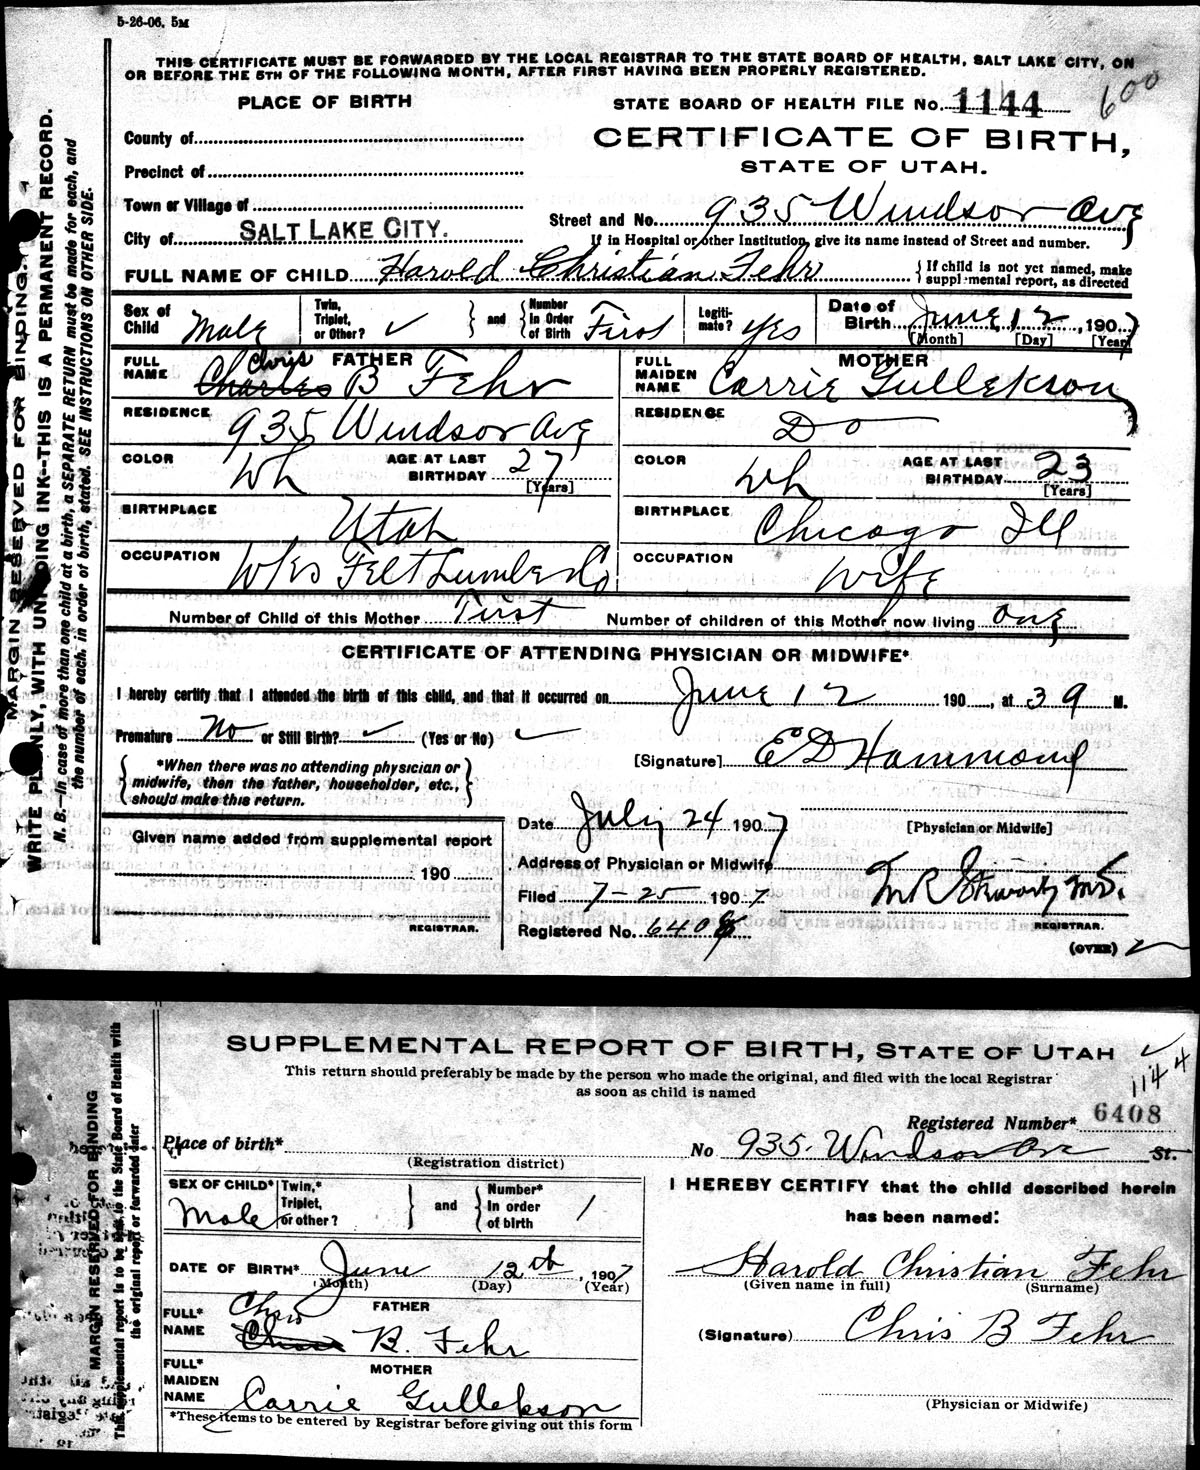 5-26-06. 5M
THIS CERTIFICATE MUST BE FORWARDED BY THE LOCAL REGISTRAR TO THE STATE BOARD OF HEALTH, SALT LAKE CITY, ON
OR BEFORE THE 5TH OF THE FOLLOWING MONTH, AFTER FIRST HAVING BEEN PROPERLY REGISTERED.
600
PLACE OF BIRTH
STATE BOARD OF HEALTH FILE No. 1144
County of
CERTIFICATE OF BIRTH,
STATE OF UTAH.
Precinct of
Town or Village of
Street and No. 935 Windsor Ave
City of SALT LAKE CITY.
If in Hospital or other Institution, give its name instead of Street and number.
FULL NAME OF CHILD Harold Christian Fehr
{ If child is not yet named, make
supplemental report, as directed
Sex of Child Male
Twin, Triplet, or Other? ✓ } and { Number In Order of Birth First
Legitimate? Yes
Date of Birth June 12, 1907
[Month] [Day] [Year]
FULL NAME FATHER Charles Chris B Fehr
FULL MAIDEN NAME MOTHER Carrie Gullekson
RESIDENCE 935 Windsor Ave
RESIDENCE Do
COLOR Wh AGE AT LAST BIRTHDAY 27 [Years]
COLOR Wh AGE AT LAST BIRTHDAY 23 [Years]
BIRTHPLACE Utah
BIRTHPLACE Chicago Ill
OCCUPATION Wks Felt Lumber Co
OCCUPATION Wife
Number of Child of this Mother First Number of children of this Mother now living One
CERTIFICATE OF ATTENDING PHYSICIAN OR MIDWIFE*
I hereby certify that I attended the birth of this child, and that it occurred on June 12 190 , at 3 9 M.
Premature No or Still Birth? ✓ (Yes or No) ✓
[Signature] E D Hammond
{ *When there was no attending physician or
midwife, then the father, householder, etc.,
should make this return. }
Date July 24 1907
[Physician or Midwife]
Given name added from supplemental report
Address of Physician or Midwife
190
Filed 7-25 1907
REGISTRAR.
Registered No. 6408
M.D.
REGISTRAR.
(OVER)
MARGIN RESERVED FOR BINDING.
WRITE PLAINLY, WITH UNFADING INK--THIS IS A PERMANENT RECORD.
N. B.—In case of more than one child at a birth, a SEPARATE RETURN must be made for each, and
the number of each, in order of birth, stated. SEE INSTRUCTIONS ON OTHER SIDE.
SUPPLEMENTAL REPORT OF BIRTH, STATE OF UTAH
This return should preferably be made by the person who made the original, and filed with the local Registrar
as soon as child is named
1144
Registered Number* 6408
Place of birth*
(Registration district)
No 935 Windsor Ave St.
SEX OF CHILD* Male
Twin,* Triplet, or other? } and { Number* In order of birth 1
I HEREBY CERTIFY that the child described herein
has been named:
DATE OF BIRTH* June 12th, 1907
(Month) (Day) (Year)
Harold Christian Fehr
(Given name in full) (Surname)
FULL* NAME FATHER Chris B. Fehr
(Signature) Chris B Fehr
FULL* MAIDEN NAME MOTHER Carrie Gullekson
(Physician or Midwife)
*These items to be entered by Registrar before giving out this form
MARGIN RESERVED FOR BINDING
This supplemental report to be sent to the State Board of Health with
the original report or forwarded later